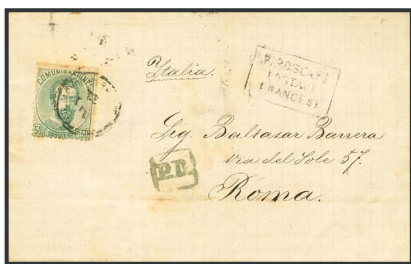 COMUNICACIONES
Italia.
PIROSCAFI
POSTALI
FRANCESI
Sig. Baltasar Barrera
via del Sole 57.
P.D.
Roma.